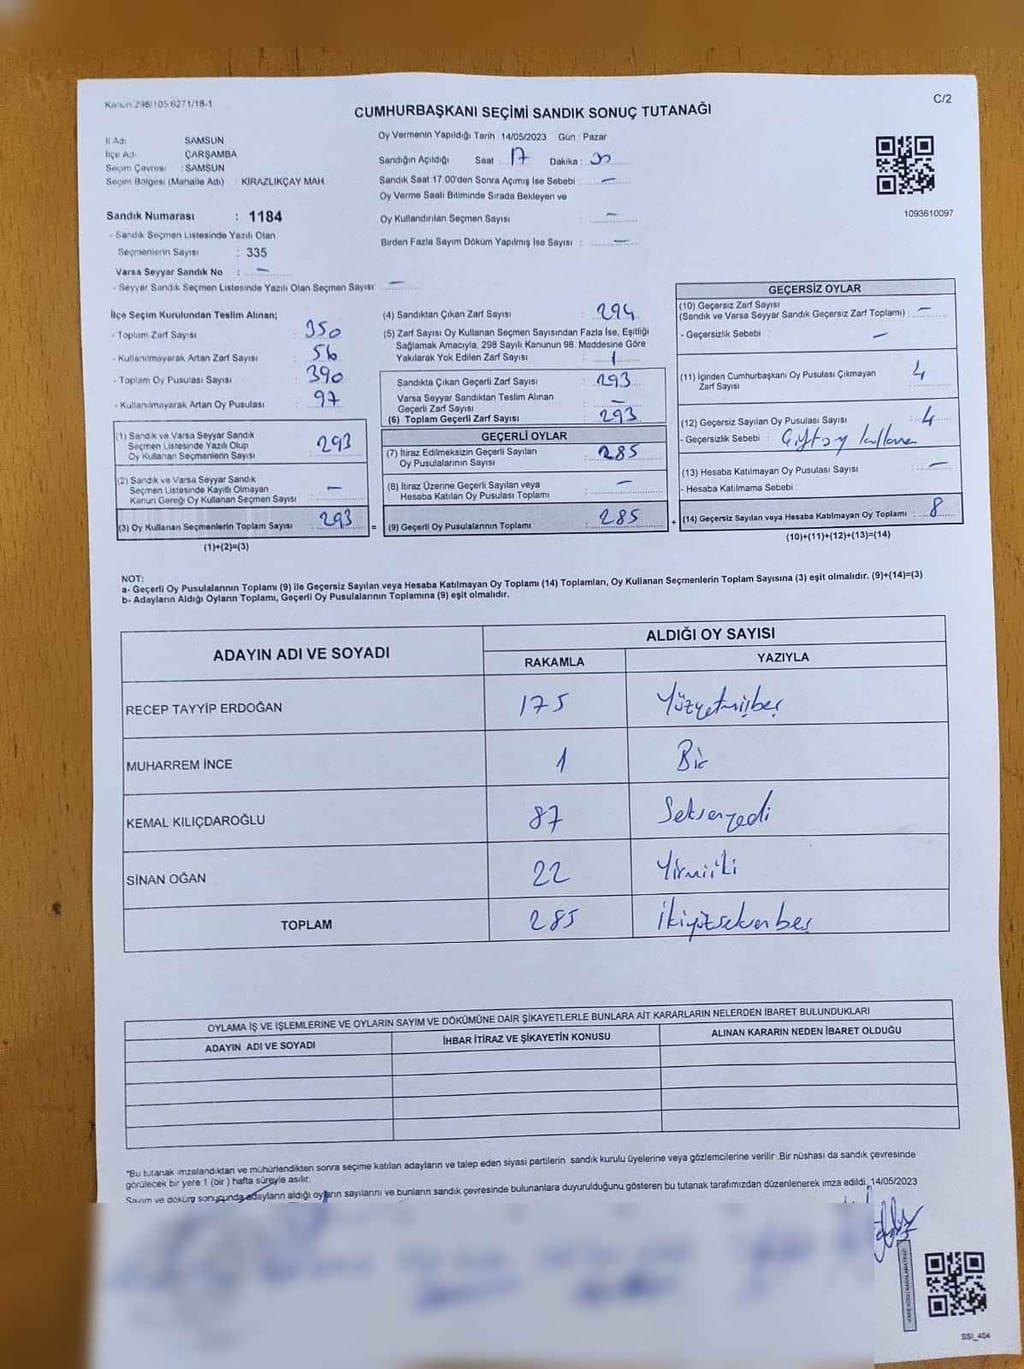 Kanun 298/105 6271/18-1
C/2
CUMHURBAŞKANI SEÇİMİ SANDIK SONUÇ TUTANAĞI
İl Adı: SAMSUN
İlçe Adı: ÇARŞAMBA
Seçim Çevresi : SAMSUN
Seçim Bölgesi (Mahalle Adı) : KIRAZLIKÇAY MAH
Sandık Numarası : 1184
- Sandık Seçmen Listesinde Yazılı Olan
Seçmenlerin Sayısı : 335
Varsa Seyyar Sandık No : -
- Seyyar Sandık Seçmen Listesinde Yazılı Olan Seçmen Sayısı: -
Oy Vermenin Yapıldığı Tarih : 14/05/2023 Gün : Pazar
Sandığın Açıldığı Saat : 17 Dakika :
Sandık Saat 17:00'den Sonra Açımış İse Sebebi : -
Oy Verme Saati Bitiminde Sırada Bekleyen ve
Oy Kullandırılan Seçmen Sayısı : -
Birden Fazla Sayım Döküm Yapılmış İse Sayısı : -
1093610097
İlçe Seçim Kurulundan Teslim Alınan;
- Toplam Zarf Sayısı : 350
- Kullanılmayarak Artan Zarf Sayısı : 56
- Toplam Oy Pusulası Sayısı : 390
- Kullanılmayarak Artan Oy Pusulası : 97
(1) Sandık ve Varsa Seyyar Sandık
Seçmen Listesinde Yazılı Olup
Oy Kullanan Seçmenlerin Sayısı : 293
(2) Sandık ve Varsa Seyyar Sandık
Seçmen Listesinde Kayıtlı Olmayan
Kanun Gereği Oy Kullanan Seçmen Sayısı : -
(3) Oy Kullanan Seçmenlerin Toplam Sayısı : 293 =
(1)+(2)=(3)
(4) Sandıktan Çıkan Zarf Sayısı : 294
(5) Zarf Sayısı Oy Kullanan Seçmen Sayısından Fazla İse, Eşitliği
Sağlamak Amacıyla, 298 Sayılı Kanunun 98. Maddesine Göre
Yakılarak Yok Edilen Zarf Sayısı : 1
Sandıkta Çıkan Geçerli Zarf Sayısı : 293
Varsa Seyyar Sandıktan Teslim Alınan
Geçerli Zarf Sayısı : -
(6) Toplam Geçerli Zarf Sayısı : 293
GEÇERLİ OYLAR
(7) İtiraz Edilmeksizin Geçerli Sayılan
Oy Pusulalarının Sayısı : 285
(8) İtiraz Üzerine Geçerli Sayılan veya
Hesaba Katılan Oy Pusulası Toplamı : -
(9) Geçerli Oy Pusulalarının Toplamı : 285 +
GEÇERSİZ OYLAR
(10) Geçersiz Zarf Sayısı
(Sandık ve Varsa Seyyar Sandık Geçersiz Zarf Toplamı) : -
- Geçersizlik Sebebi : -
(11) İçinden Cumhurbaşkanı Oy Pusulası Çıkmayan
Zarf Sayısı : 4
(12) Geçersiz Sayılan Oy Pusulası Sayısı : 4
- Geçersizlik Sebebi : Çift oy
(13) Hesaba Katılmayan Oy Pusulası Sayısı : -
- Hesaba Katılmama Sebebi :
(14) Geçersiz Sayılan veya Hesaba Katılmayan Oy Toplamı : 8
(10)+(11)+(12)+(13)=(14)
NOT:
a- Geçerli Oy Pusulalarının Toplamı (9) ile Geçersiz Sayılan veya Hesaba Katılmayan Oy Toplamı (14) Toplamları, Oy Kullanan Seçmenlerin Toplam Sayısına (3) eşit olmalıdır. (9)+(14)=(3)
b- Adayların Aldığı Oyların Toplamı, Geçerli Oy Pusulalarının Toplamına (9) eşit olmalıdır.
ADAYIN ADI VE SOYADI
ALDIĞI OY SAYISI
RAKAMLA YAZIYLA
RECEP TAYYİP ERDOĞAN 175 Yüzyetmişbeş
MUHARREM İNCE 1 Bir
KEMAL KILIÇDAROĞLU 87 Seksenyedi
SİNAN OĞAN 22 Yirmiiki
TOPLAM 285 İkiyüzseksenbeş
OYLAMA İŞ VE İŞLEMLERİNE VE OYLARIN SAYIM VE DÖKÜMÜNE DAİR ŞİKAYETLERLE BUNLARA AİT KARARLARIN NELERDEN İBARET BULUNDUKLARI
ADAYIN ADI VE SOYADI İHBAR İTİRAZ VE ŞİKAYETİN KONUSU ALINAN KARARIN NEDEN İBARET OLDUĞU
*Bu tutanak imzalandıktan ve mühürlendikten sonra seçime katılan adayların ve talep eden siyasi partilerin sandık kurulu üyelerine veya gözlemcilerine verilir. Bir nüshası da sandık çevresinde
görülecek bir yere 1 (bir) hafta süreyle asılır.
Sayım ve döküm sonucunda adayların aldığı oyların sayılarını ve bunların sandık çevresinde bulunanlara duyurulduğunu gösteren bu tutanak tarafımızdan düzenlenerek imza edildi. 14/05/2023
SSI_404